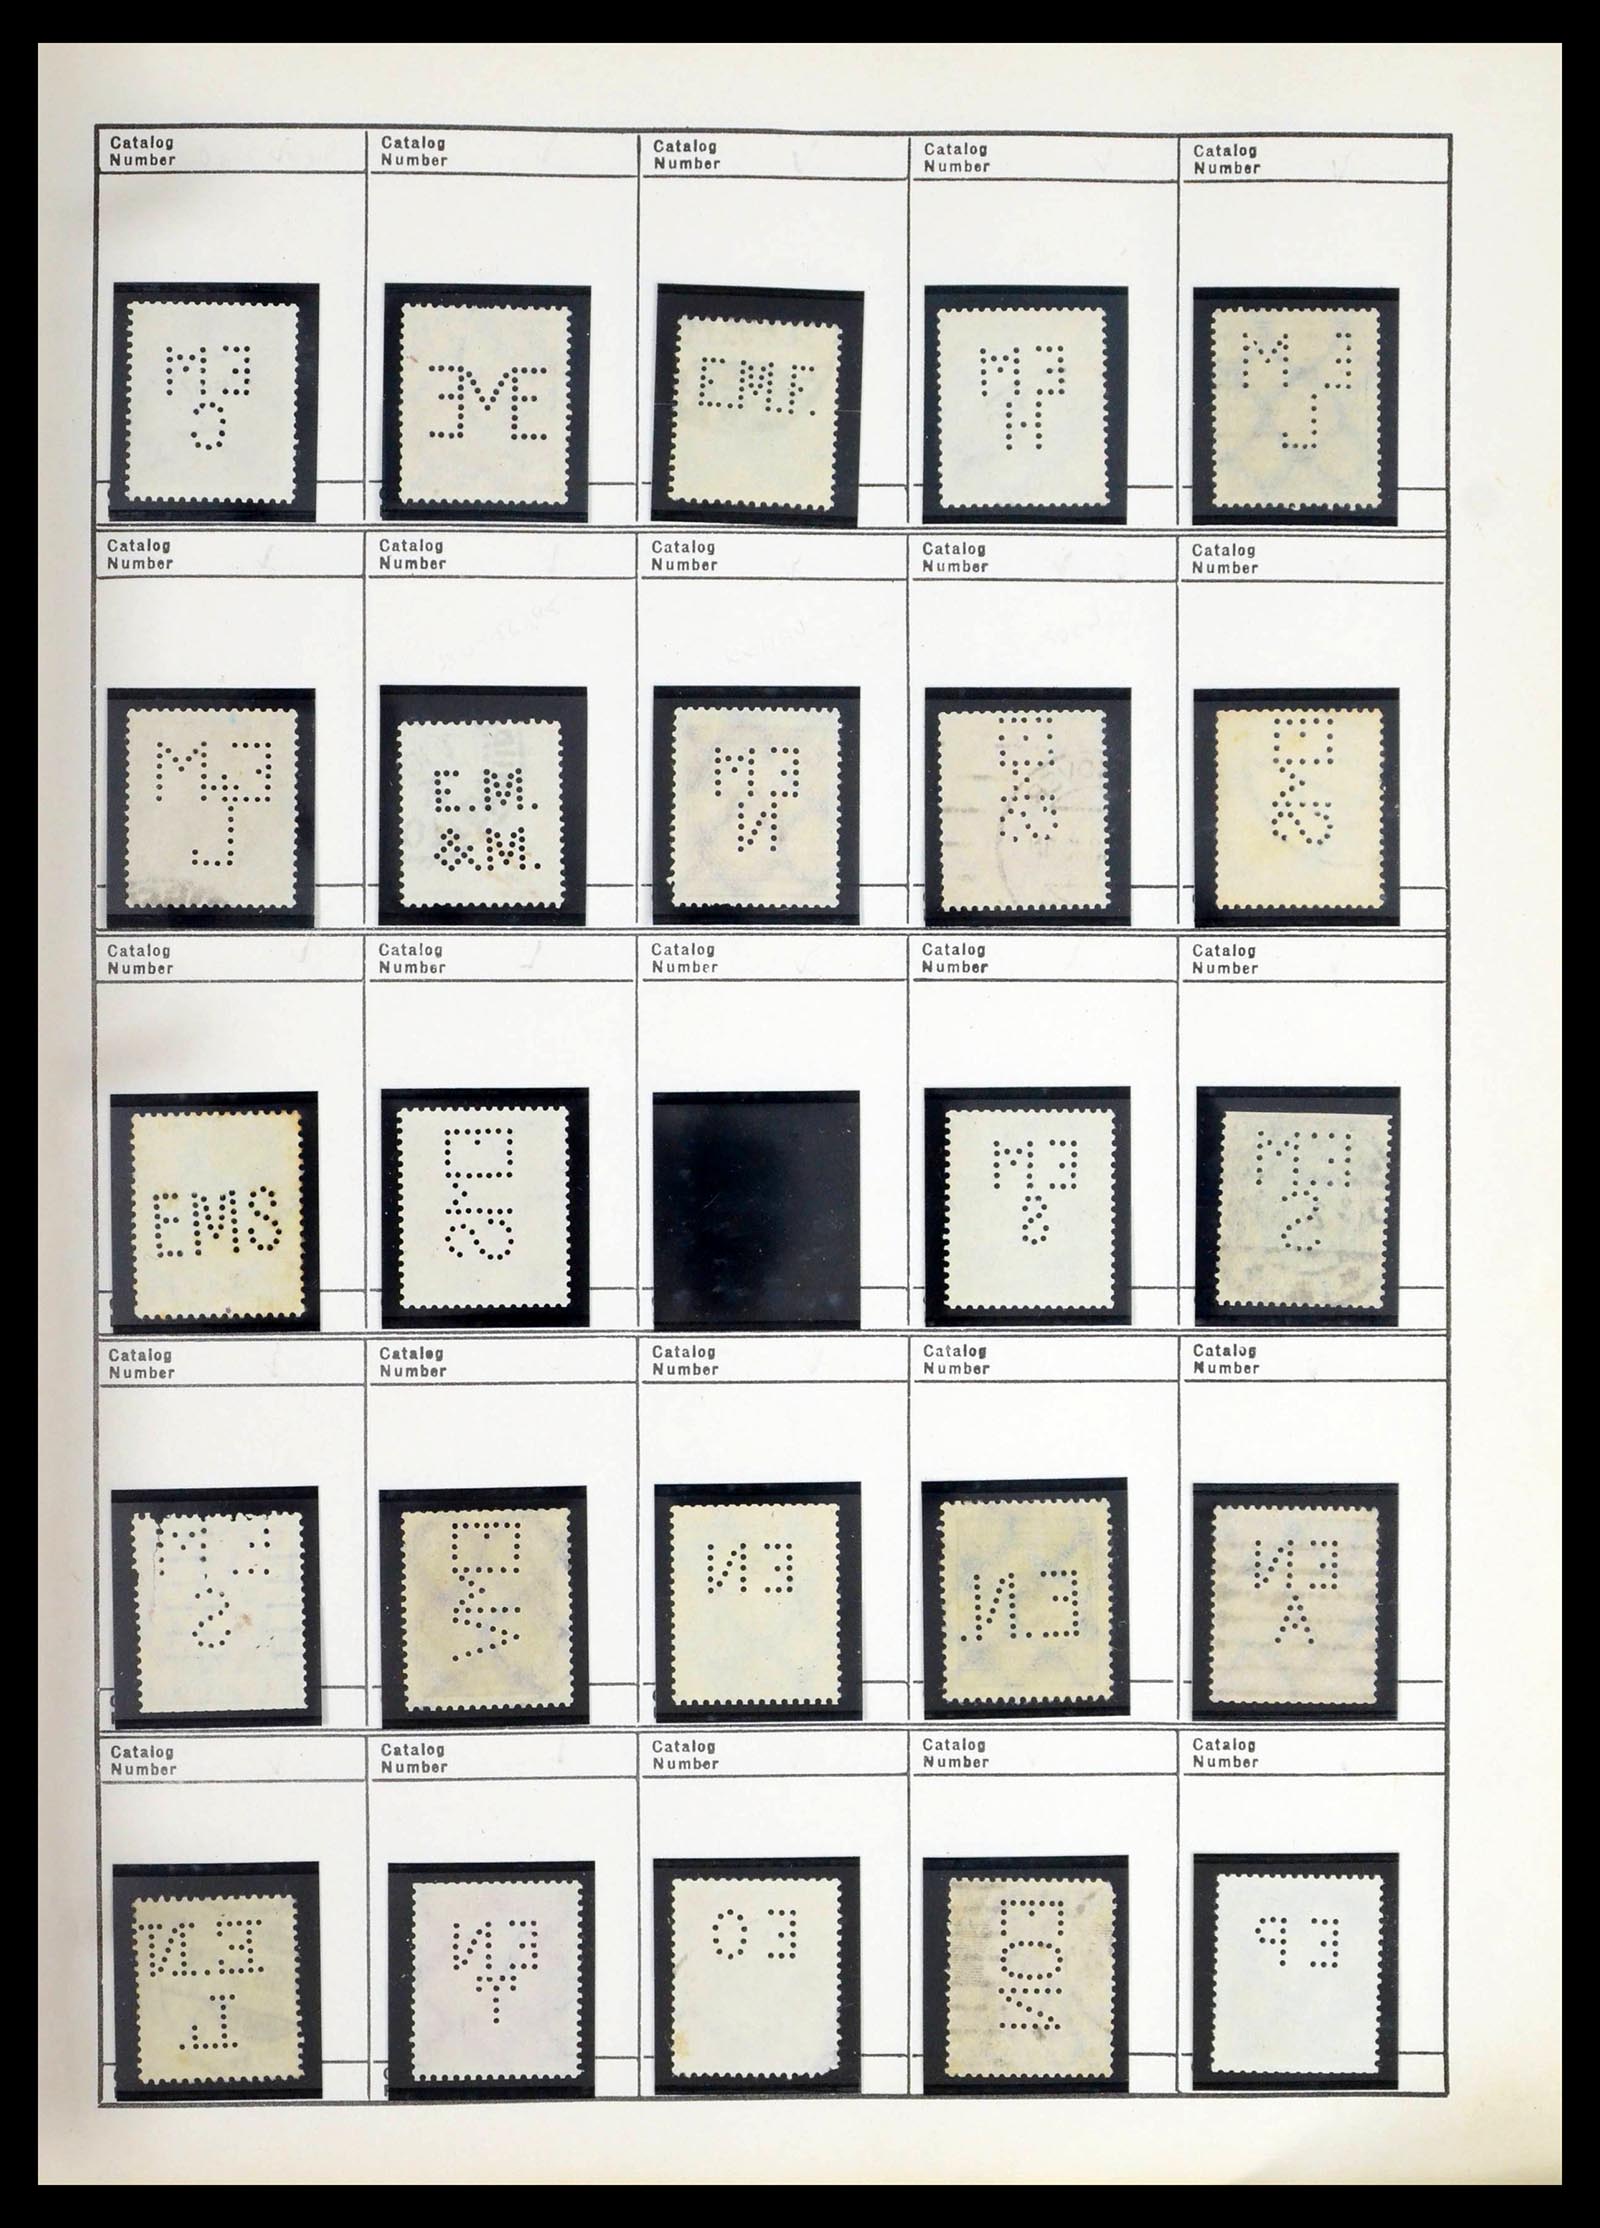 Catalog
Number
Catalog
Number
Catalog
Number
Catalog
Number
Catalog
Number
EM
EME
E.M.F.
EM
H
EM
L
Catalog
Number
Catalog
Number
Catalog
Number
Catalog
Number
Catalog
Number
L
E.M.
&M.
EM
N
EMS
Catalog
Number
Catalog
Number
Catalog
Number
Catalog
Number
Catalog
Number
EMS
EMS
EM
S
EM
S
Catalog
Number
Catalog
Number
Catalog
Number
Catalog
Number
Catalog
Number
S
EMW
EN
E.N.
EN
A
Catalog
Number
Catalog
Number
Catalog
Number
Catalog
Number
Catalog
Number
E.N.
L.
EN
T
EO
EON
EP